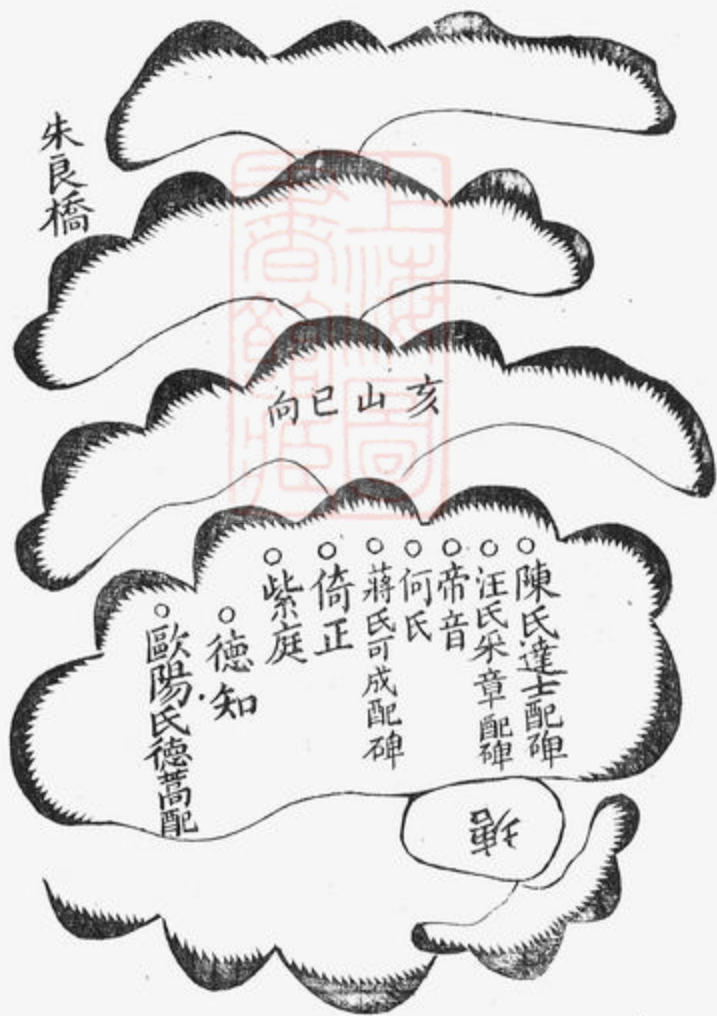 朱良橋
亥山巳向
陳氏達士配碑
汪氏采章配碑
帝音
何氏
蔣氏可成配碑
倚正
紫庭
德知
歐陽氏德蒿配
塘
上海圖書館藏